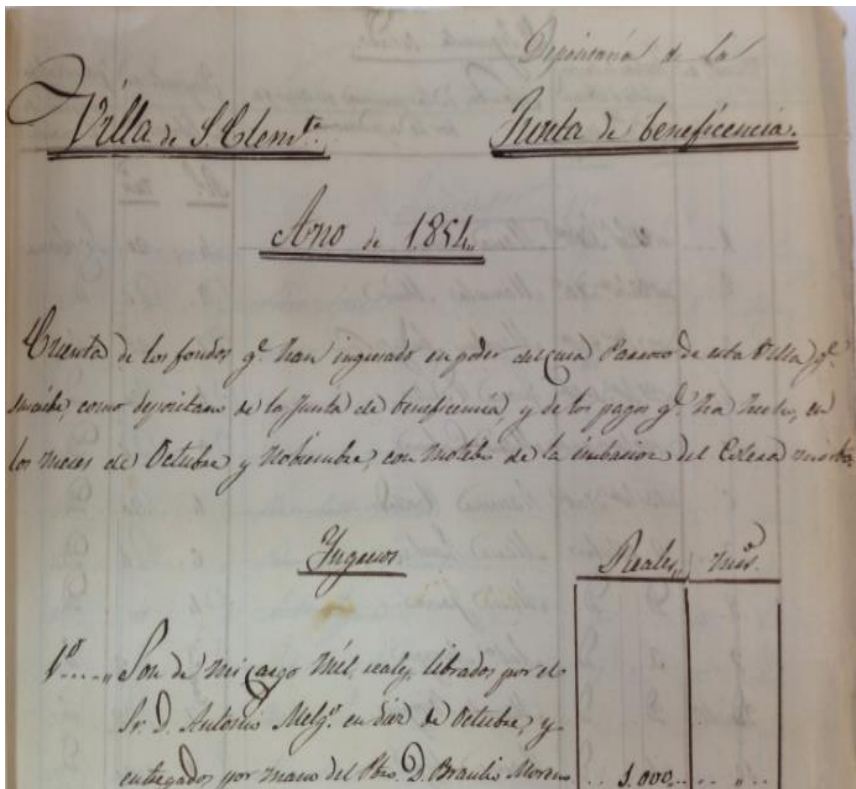 Depositaria de la
Villa de S. Clem.te
Junta de beneficencia.
Año de 1854,,
Cuenta de los fondos q.e han ingresado en poder del Cura Parroco de esta Villa q.e
suscribe, como depositario de la Junta de beneficencia, y de los pagos q.e ha hecho, en
los meses de Octubre y Nobiembre, con motibo de la imbasion del Colera morbo.
Ingresos
Reales,, mrs.
1º....,, Son de mi cargo mil, reales, librados por el
Sr. D. Antonio Melg.o en diez de Octubre, y
entregados por mano del Pbro. D. Braulio Moreno .. 1.000,.. .. ,, ..